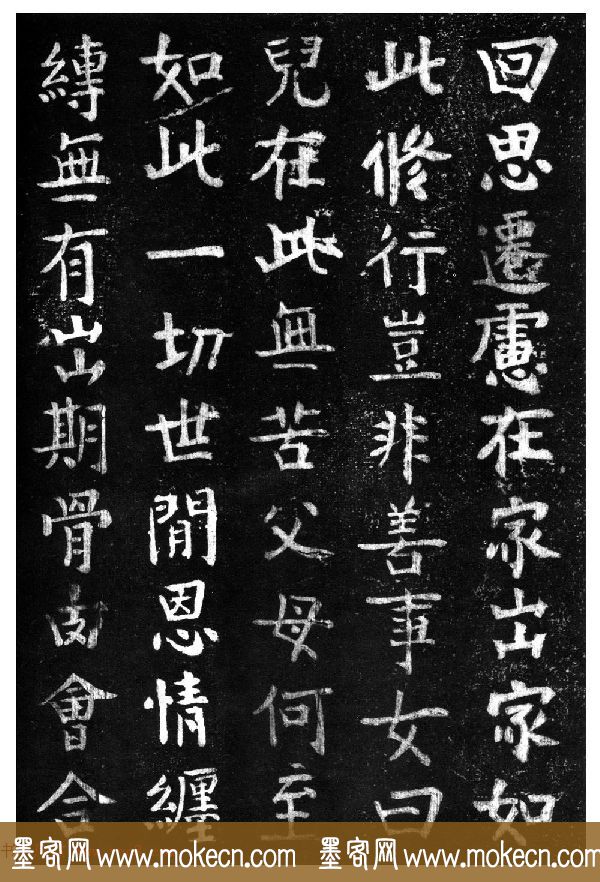 回思遷慮在家出家如
此修行豈非善事女曰
兒在此無苦父母何至
如此一切世閒恩情纏
縛無有出期骨肉會合
墨客网 www.mokecn.com 墨客网 www.mokecn.com